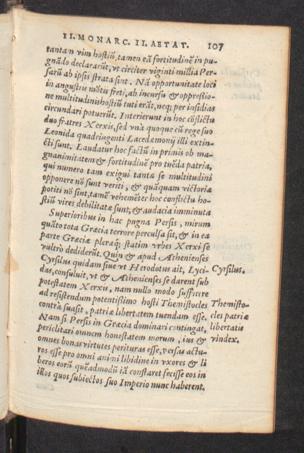 II. MONARC. II. AETAT. 107
tantam vim hostiū, tamen eā fortitudinē in pu-
gnādo declararūt, ut circiter viginti millia Per-
sarū ab ipsis strata sint. Nā opportunitate loci
in angustiis mōtiū & freti, ab incursu & oppressio-
ne multitudinis hostiū tuti erāt, neq; per insidias
circundari poterūt. Interierunt in hoc cōflictu
duo fratres Xerxis, sed unà quoque cū rege suo
Leonida quadringenti Lacedemonij illi extin-
cti sunt. Laudatur hoc factū in primis ob ma-
gnanimitatem & fortitudinē pro tuēda patria,
qui numero tam exigui tanta se multitudini
opponere nō sunt veriti, & quāquam victoria
potiti nō sint, tamē vehemēter hoc conflictu ho-
stiū vires debilitatæ sunt, & audacia imminuta
Superioribus in hac pugna Persis, mirum
quāto tota Græcia terrore perculsa sit, & in ea
parte Græciæ pleriq; statim urbes Xerxi se
vultrò dediderūt. Quin & apud Athenienses
Cyrsilus quidam siue ut Herodotus ait, Lyci- Cyrsilus,
das, consuluit, ut & Athenienses se darent sub
potestatem Xerxis, nam nullo modo sufficere
ad resistendum potentissimo hosti Themistocles Themisto-
contrà suasit, patriæ libertatem tuendam esse. cles patriæ
Nam si Persis in Græcia dominari contingat, libertatis
periclitari omnem honestatem morum, ius & vindex.
omnes bonas virtutes perituras esse, versas actu-
ros esse prò omni animi libidine in vxores & li
beros eorū quēadmodū iā constaret fecisse eos in
illos quos subiectos suo Imperio nunc haberent.